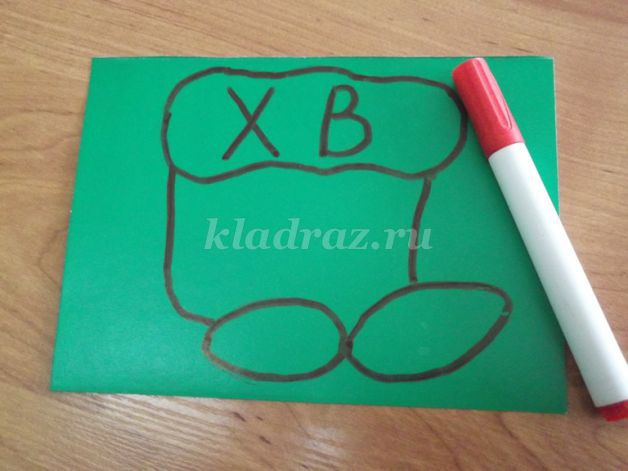 Х В
kladraz.ru